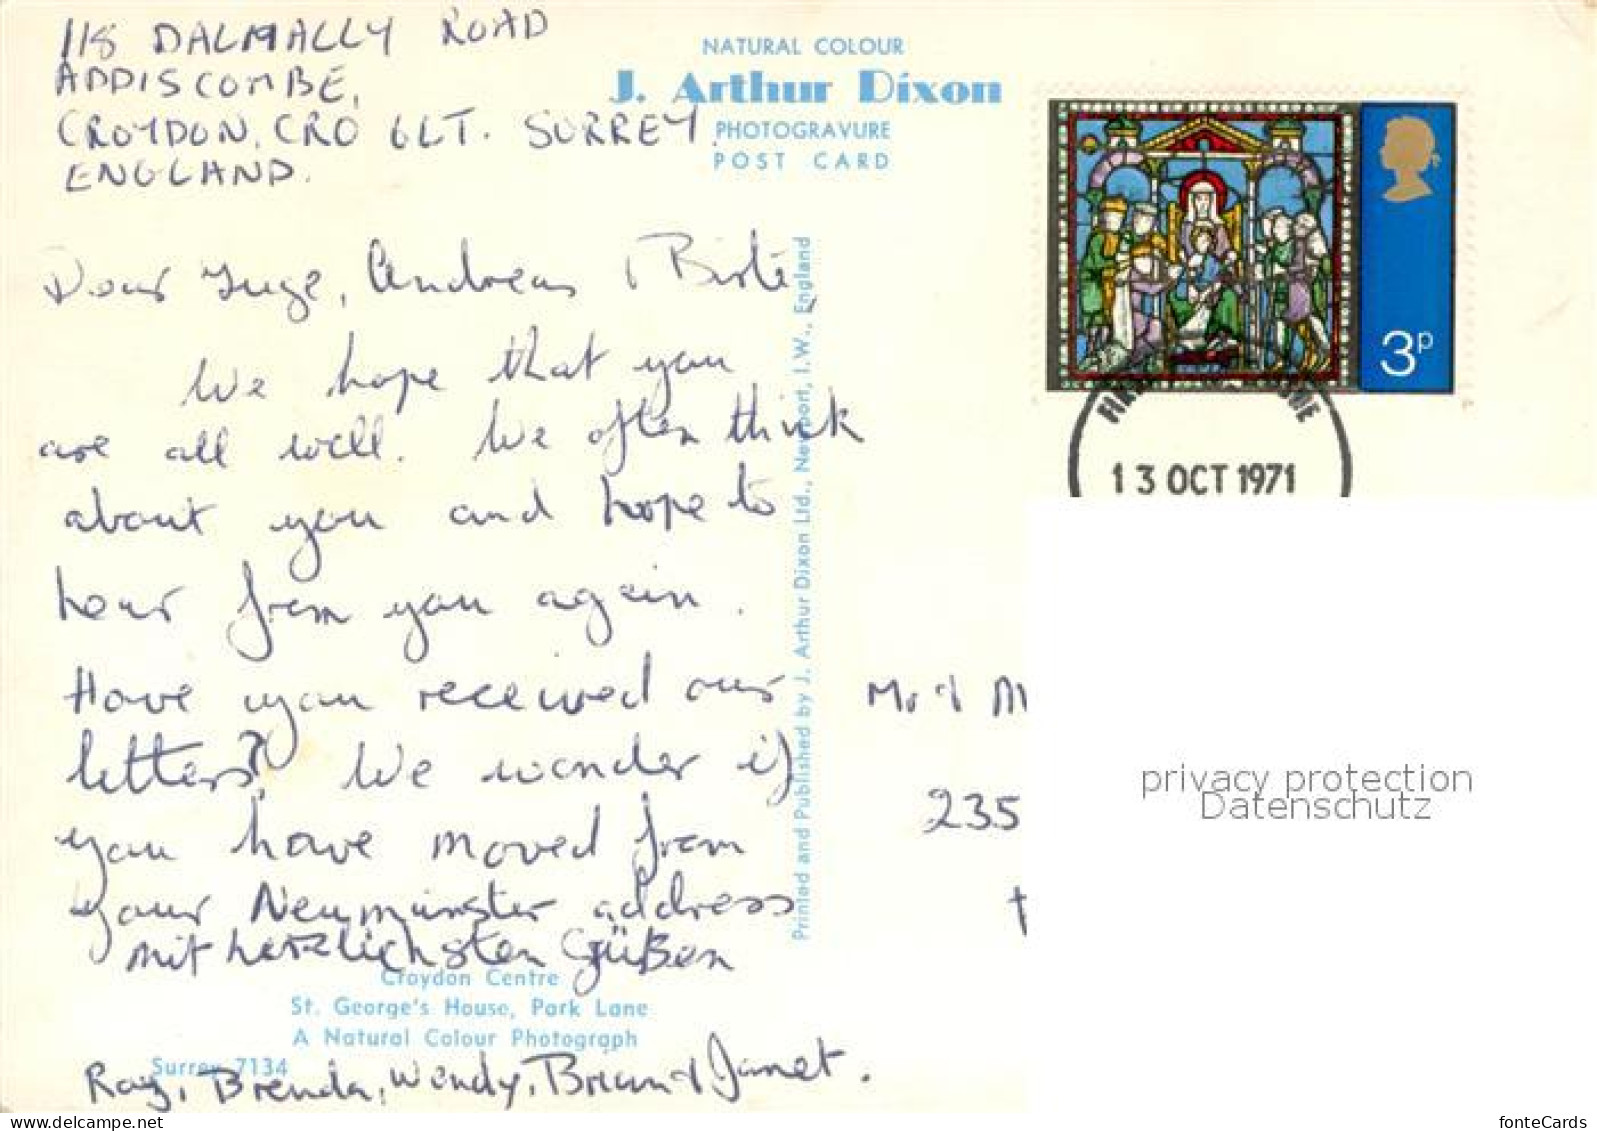 118 DALMALLY ROAD
ADDISCOMBE,
CROYDON, CRO 6LT. SURREY.
ENGLAND.
NATURAL COLOUR
J. Arthur Dixon
PHOTOGRAVURE
POST CARD
3p
FIR
UE
13 OCT 1971
Dear Inge, Andreas & Birte,
We hope that you
are all well. We often think
about you and hope to
hear from you again.
Have you received our
letters? We wonder if
you have moved from
your Neumünster address
mit herzlichsten Grüßen
Ray, Brenda, Wendy, Brian & Janet.
Printed and Published by J. Arthur Dixon Ltd., Newport, I.W., England
Croydon Centre
St. George's House, Park Lane
A Natural Colour Photograph
Surrey 7134
Mr & M
235
privacy protection
Datenschutz
fonteCards